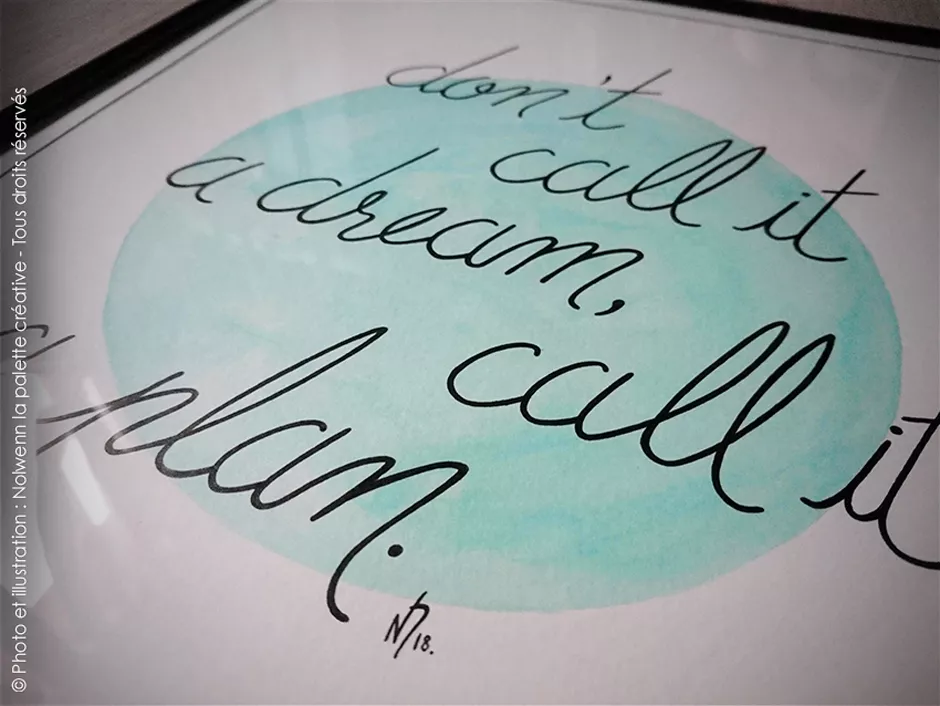 don't
call it
a dream,
call it
a plan.
N 18.
© Photo et illustration : Nolwenn la palette créative - Tous droits réservés